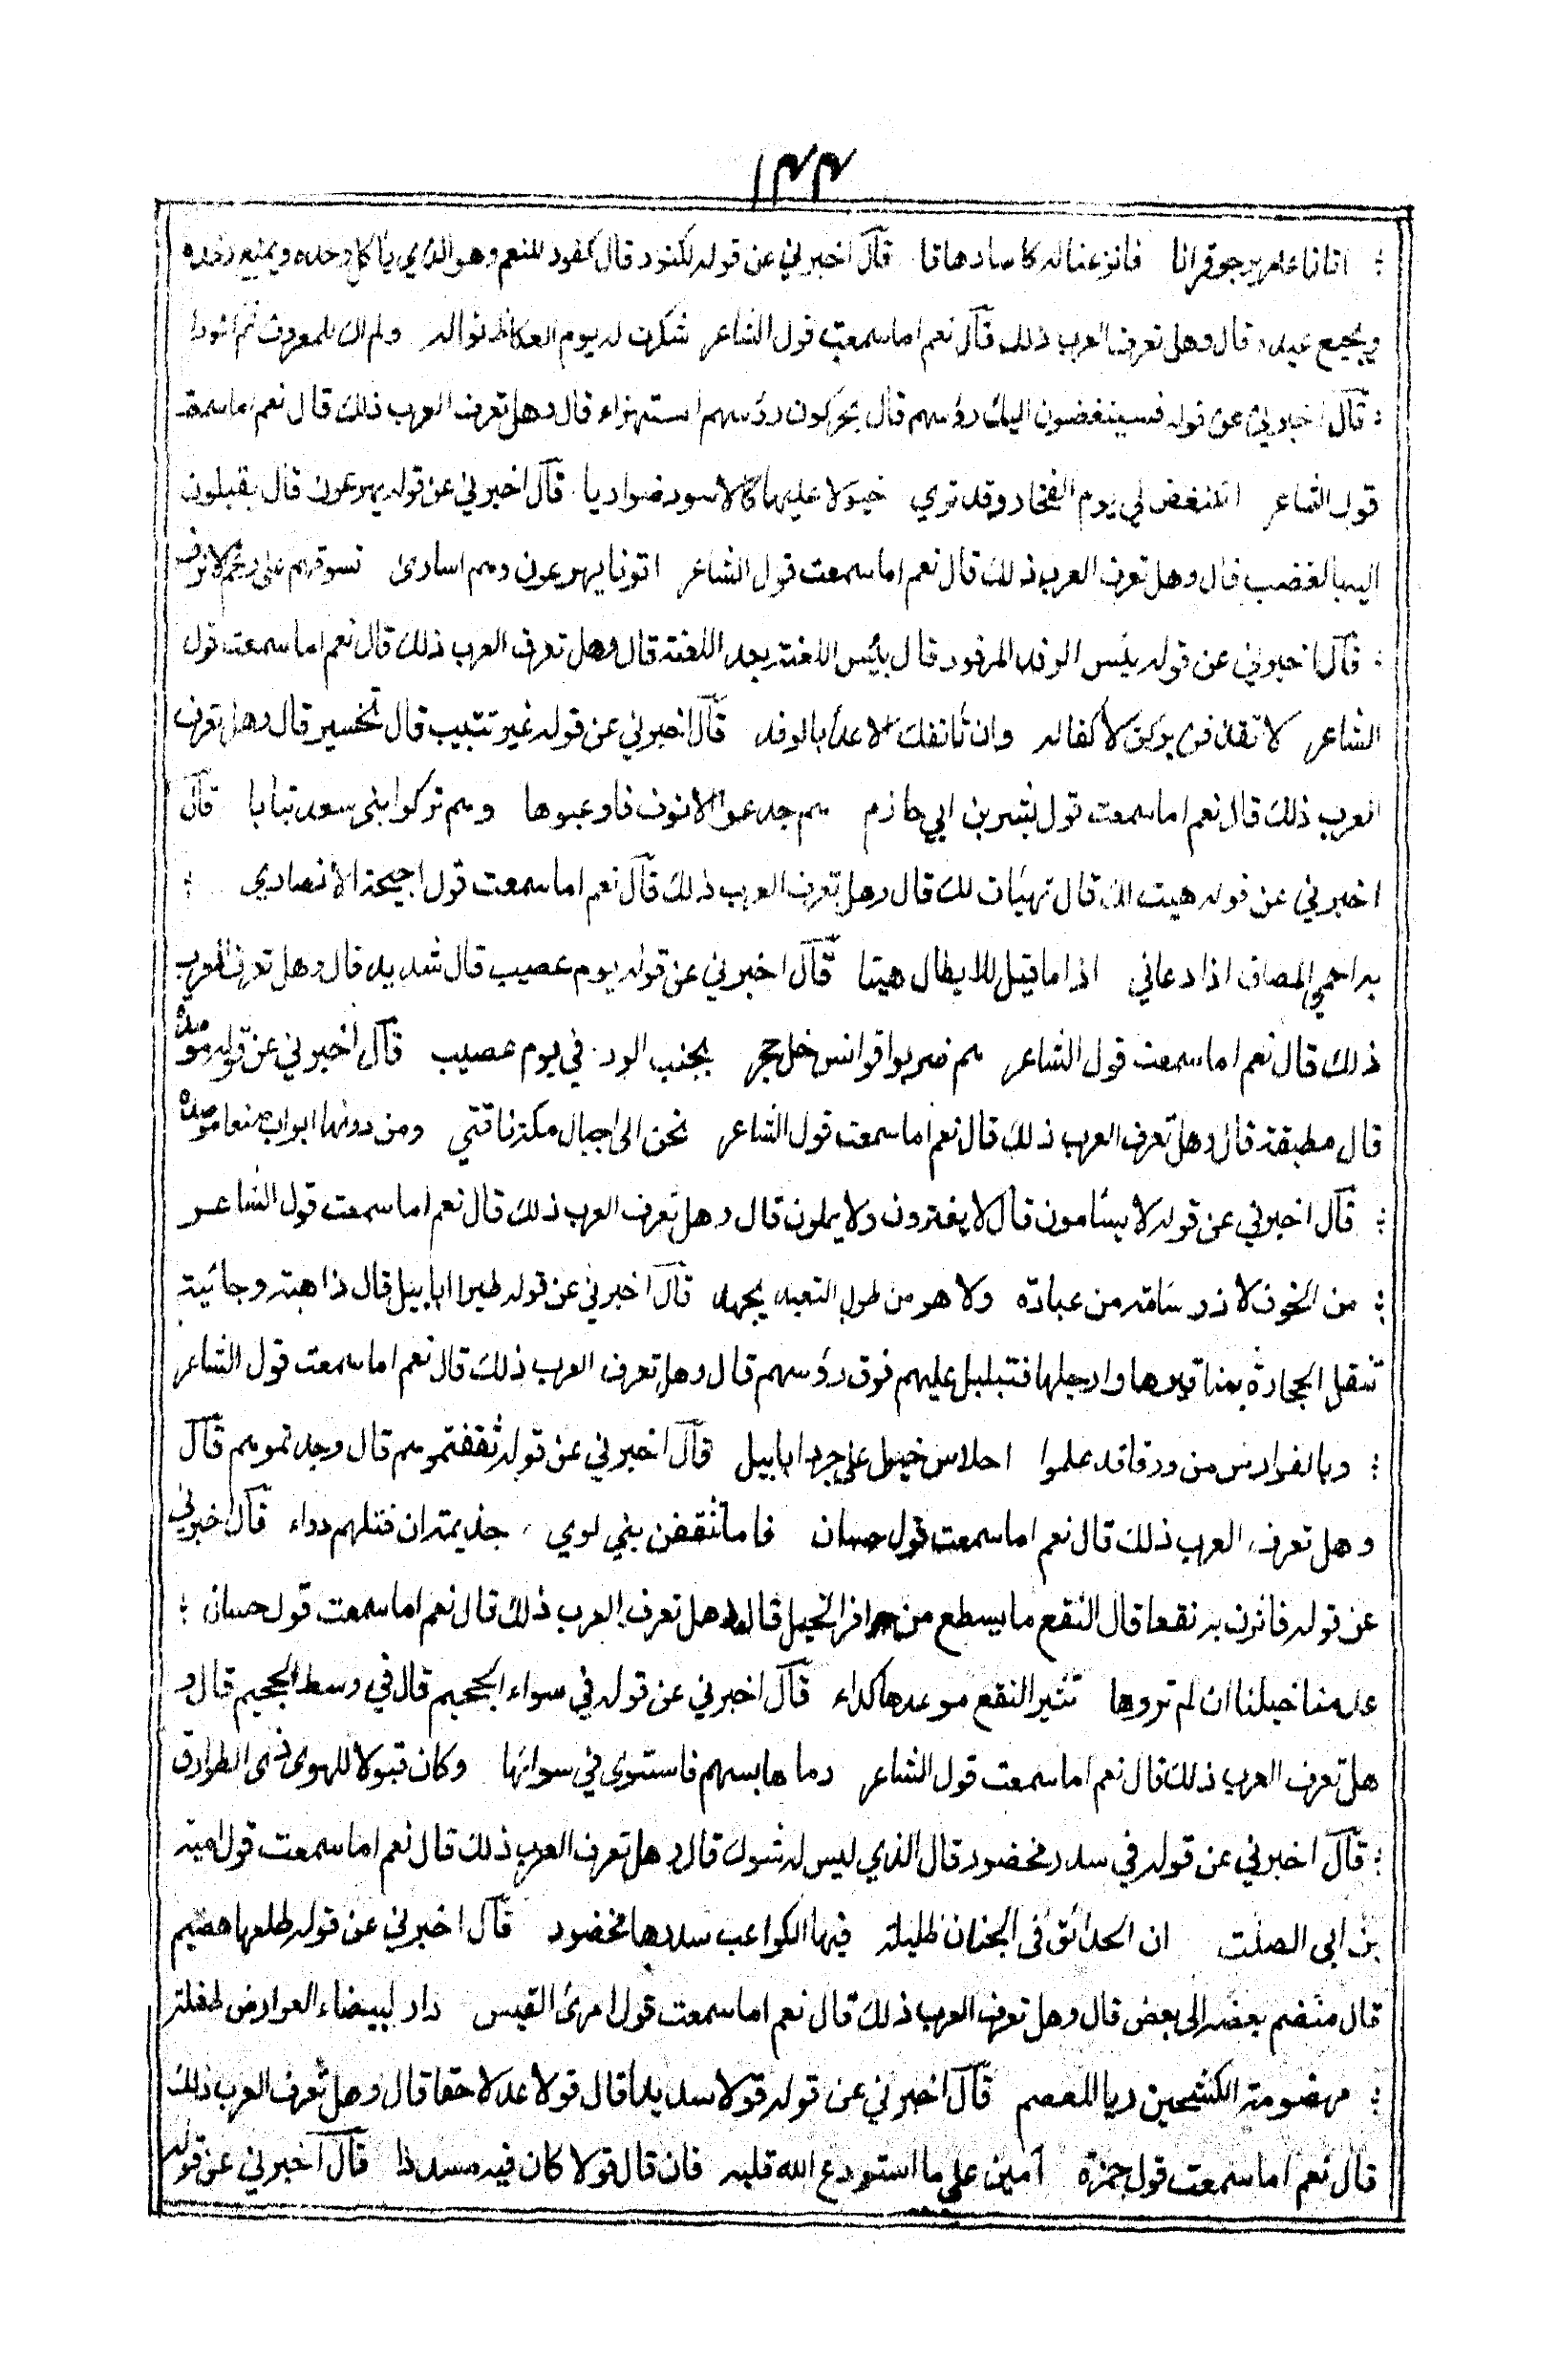 ١٤٤
؛ اتانا عامر يرجو قرانا فاترعنا له كاسا دهاقا قال اخبرني عن قوله لكنود قال كفود للنعم وهو الذي يأكل وحده ويمنع رفده
ويجيع عبده قال وهل تعرف العرب ذلك قال نعم اما سمعت قول الشاعر شكرت له يوم العكاظ نواله ولم اك للمعروف ثم كنودا
؛ قال اخبرني عن قوله فسينغضون اليك رؤسهم قال يحركون رؤسهم استهزاء قال وهل تعرف العرب ذلك قال نعم اما سمعت
قول الشاعر اتنغض لي يوم الفخار وقد تري خيولا عليها كالاسود ضواريا قال اخبرني عن قوله يهرعون قال يقبلون
اليه بالغضب قال وهل تعرف العرب ذلك قال نعم اما سمعت قول الشاعر اتونا يهرعون وهم اسارى نسوقهم على رغم الانوف
؛ قال اخبرني عن قوله بئس الرفد المرفود قال بئس اللعنة بعد اللعنة قال وهل تعرف العرب ذلك قال نعم اما سمعت قول
الشاعر لا تقذفن بركن لا كفاله وان تأثفك الاعداء بالرفد قال اخبرني عن قوله غير تتبيب قال تخسير قال وهل تعرف
العرب ذلك قال نعم اما سمعت قول بشر بن ابي حازم هم جدعوا الانوف فاوعبوها وهم تركوا بني سعد تبابا قال
اخبرني عن قوله هيت لك قال تهيأت لك قال وهل تعرف العرب ذلك قال نعم اما سمعت قول احيحة الأنصاري ؛
به احمي المضاف اذا دعاني اذا ما قيل للابطال هيتا قال اخبرني عن قوله يوم عصيب قال شديد قال وهل تعرف العرب
ذلك قال نعم اما سمعت قول الشاعر هم ضربوا قوانس خيل حجر بجنب الرد في يوم عصيب قال اخبرني عن قوله موصدة
قال مطبقة قال وهل تعرف العرب ذلك قال نعم اما سمعت قول الشاعر تحن الى اجبال مكة ناقتي ومن دونها ابواب صنعا موصدة
؛ قال اخبرني عن قوله لا يسأمون قال لا يفترون ولا يملون قال وهل تعرف العرب ذلك قال نعم اما سمعت قول الشاعر
؛ من الخوف لا ذو سامة من عبادة ولا هو من طول التعبد يجهد قال اخبرني عن قوله طيرا ابابيل قال ذاهبة وجائية
تنقل الحجارة بمناقيرها وارجلها فتبلبل عليهم فوق رؤسهم قال وهل تعرف العرب ذلك قال نعم اما سمعت قول الشاعر
؛ وبالفوارس من ورقا قد علموا احلاس خيل على جرد ابابيل قال اخبرني عن قوله ثقفتموهم قال وجدتموهم قال
وهل تعرف العرب ذلك قال نعم اما سمعت قول حسان فاما تثقفن بني لوي جذيمة ان قتلهم دواء قال اخبرني
عن قوله فاثرن به نقعا قال النقع ما يسطع من حوافر الخيل قال وهل تعرف العرب ذلك قال نعم اما سمعت قول حسان ؛
عدمنا خيلنا ان لم تروها تثير النقع موعدها كداء قال اخبرني عن قوله في سواء الجحيم قال في وسط الجحيم قال و
هل تعرف العرب ذلك قال نعم اما سمعت قول الشاعر رماها بسهم فاستوى في سوائها وكان قبولا للهوى ذي الطوارق
؛ قال اخبرني عن قوله في سدر مخضود قال الذي ليس له شوك قال وهل تعرف العرب ذلك قال نعم اما سمعت قول امية
بن ابي الصلت ان الحدائق في الجنان ظليلة فيها الكواعب سدرها مخضود قال اخبرني عن قوله طلعها هضيم
قال منضم بعضه الى بعض قال وهل تعرف العرب ذلك قال نعم اما سمعت قول امرئ القيس دار لبيضاء العوارض طفلة
؛ مهضومة الكشحين ريا المعصم قال اخبرني عن قوله قولا سديدا قال قولا عدلا حقا قال وهل تعرف العرب ذلك
قال نعم اما سمعت قول حمزة امين على ما استودع الله قلبه فان قال قولا كان فيه مسددا قال اخبرني عن قوله